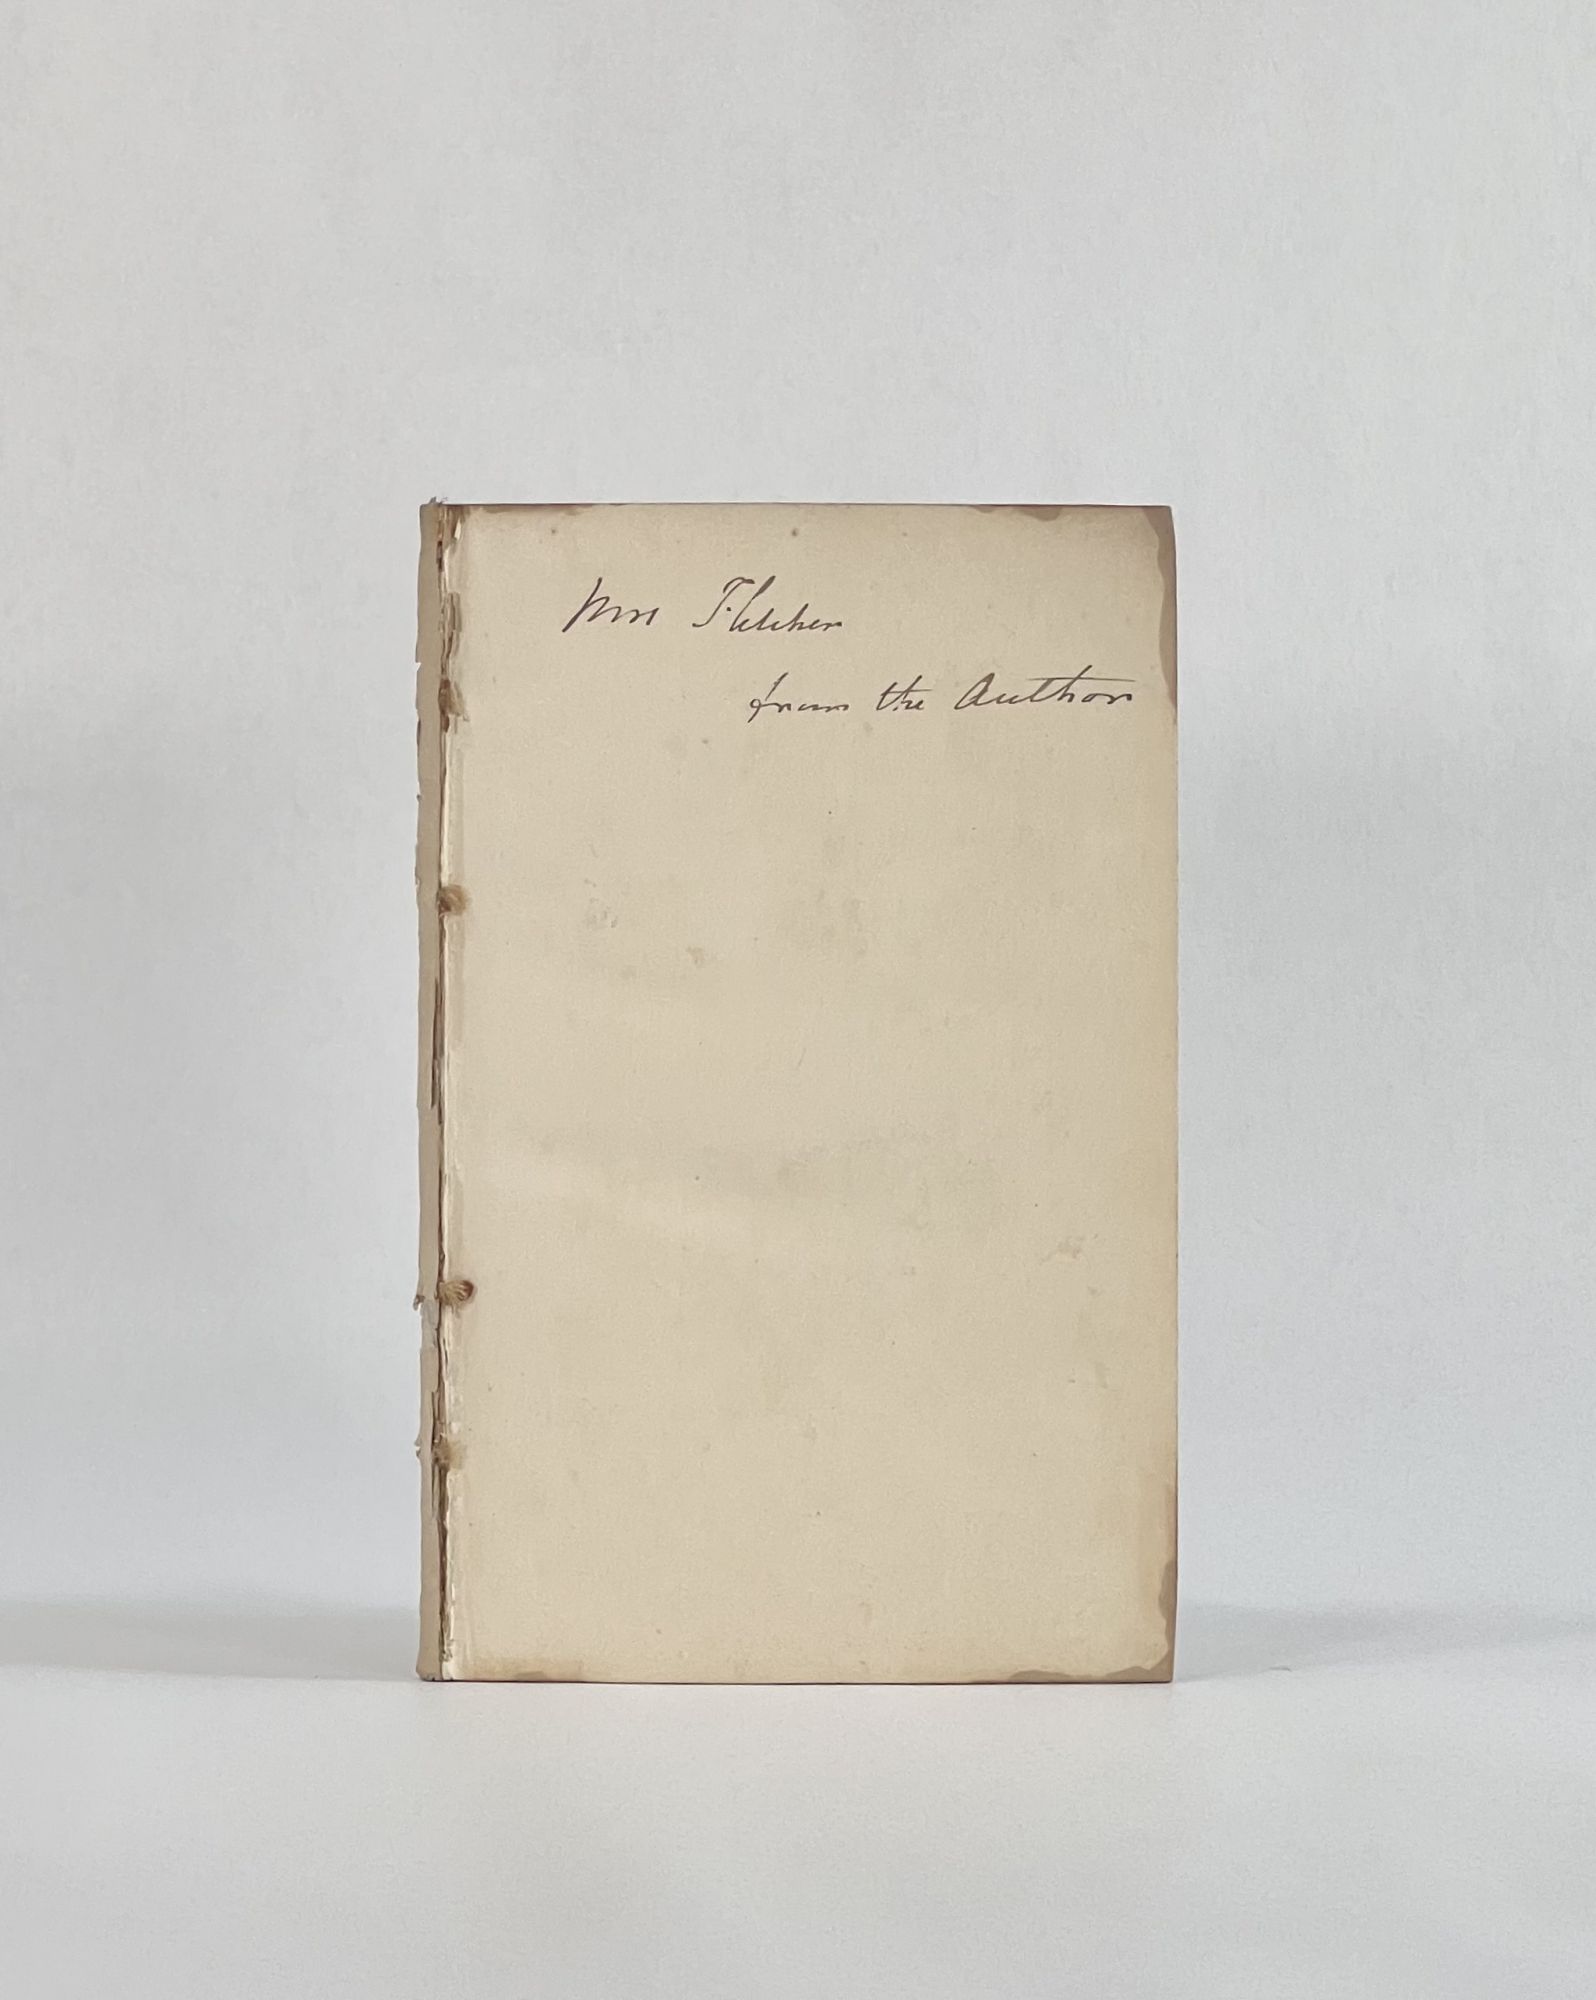 Mrs Fletcher
from the Author